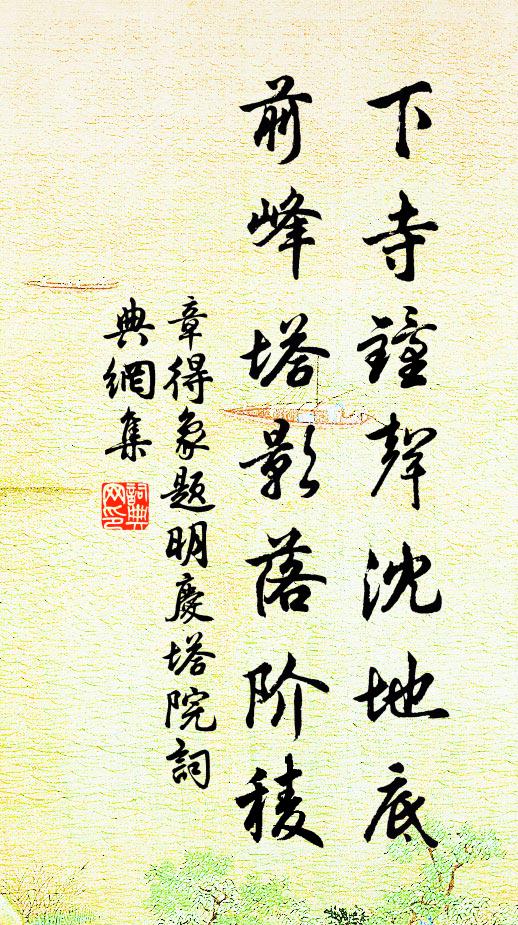 下寺鐘聲沈地底
前峰塔影落阶稜
章得象题明慶塔院詞
典網集
詞典
网印